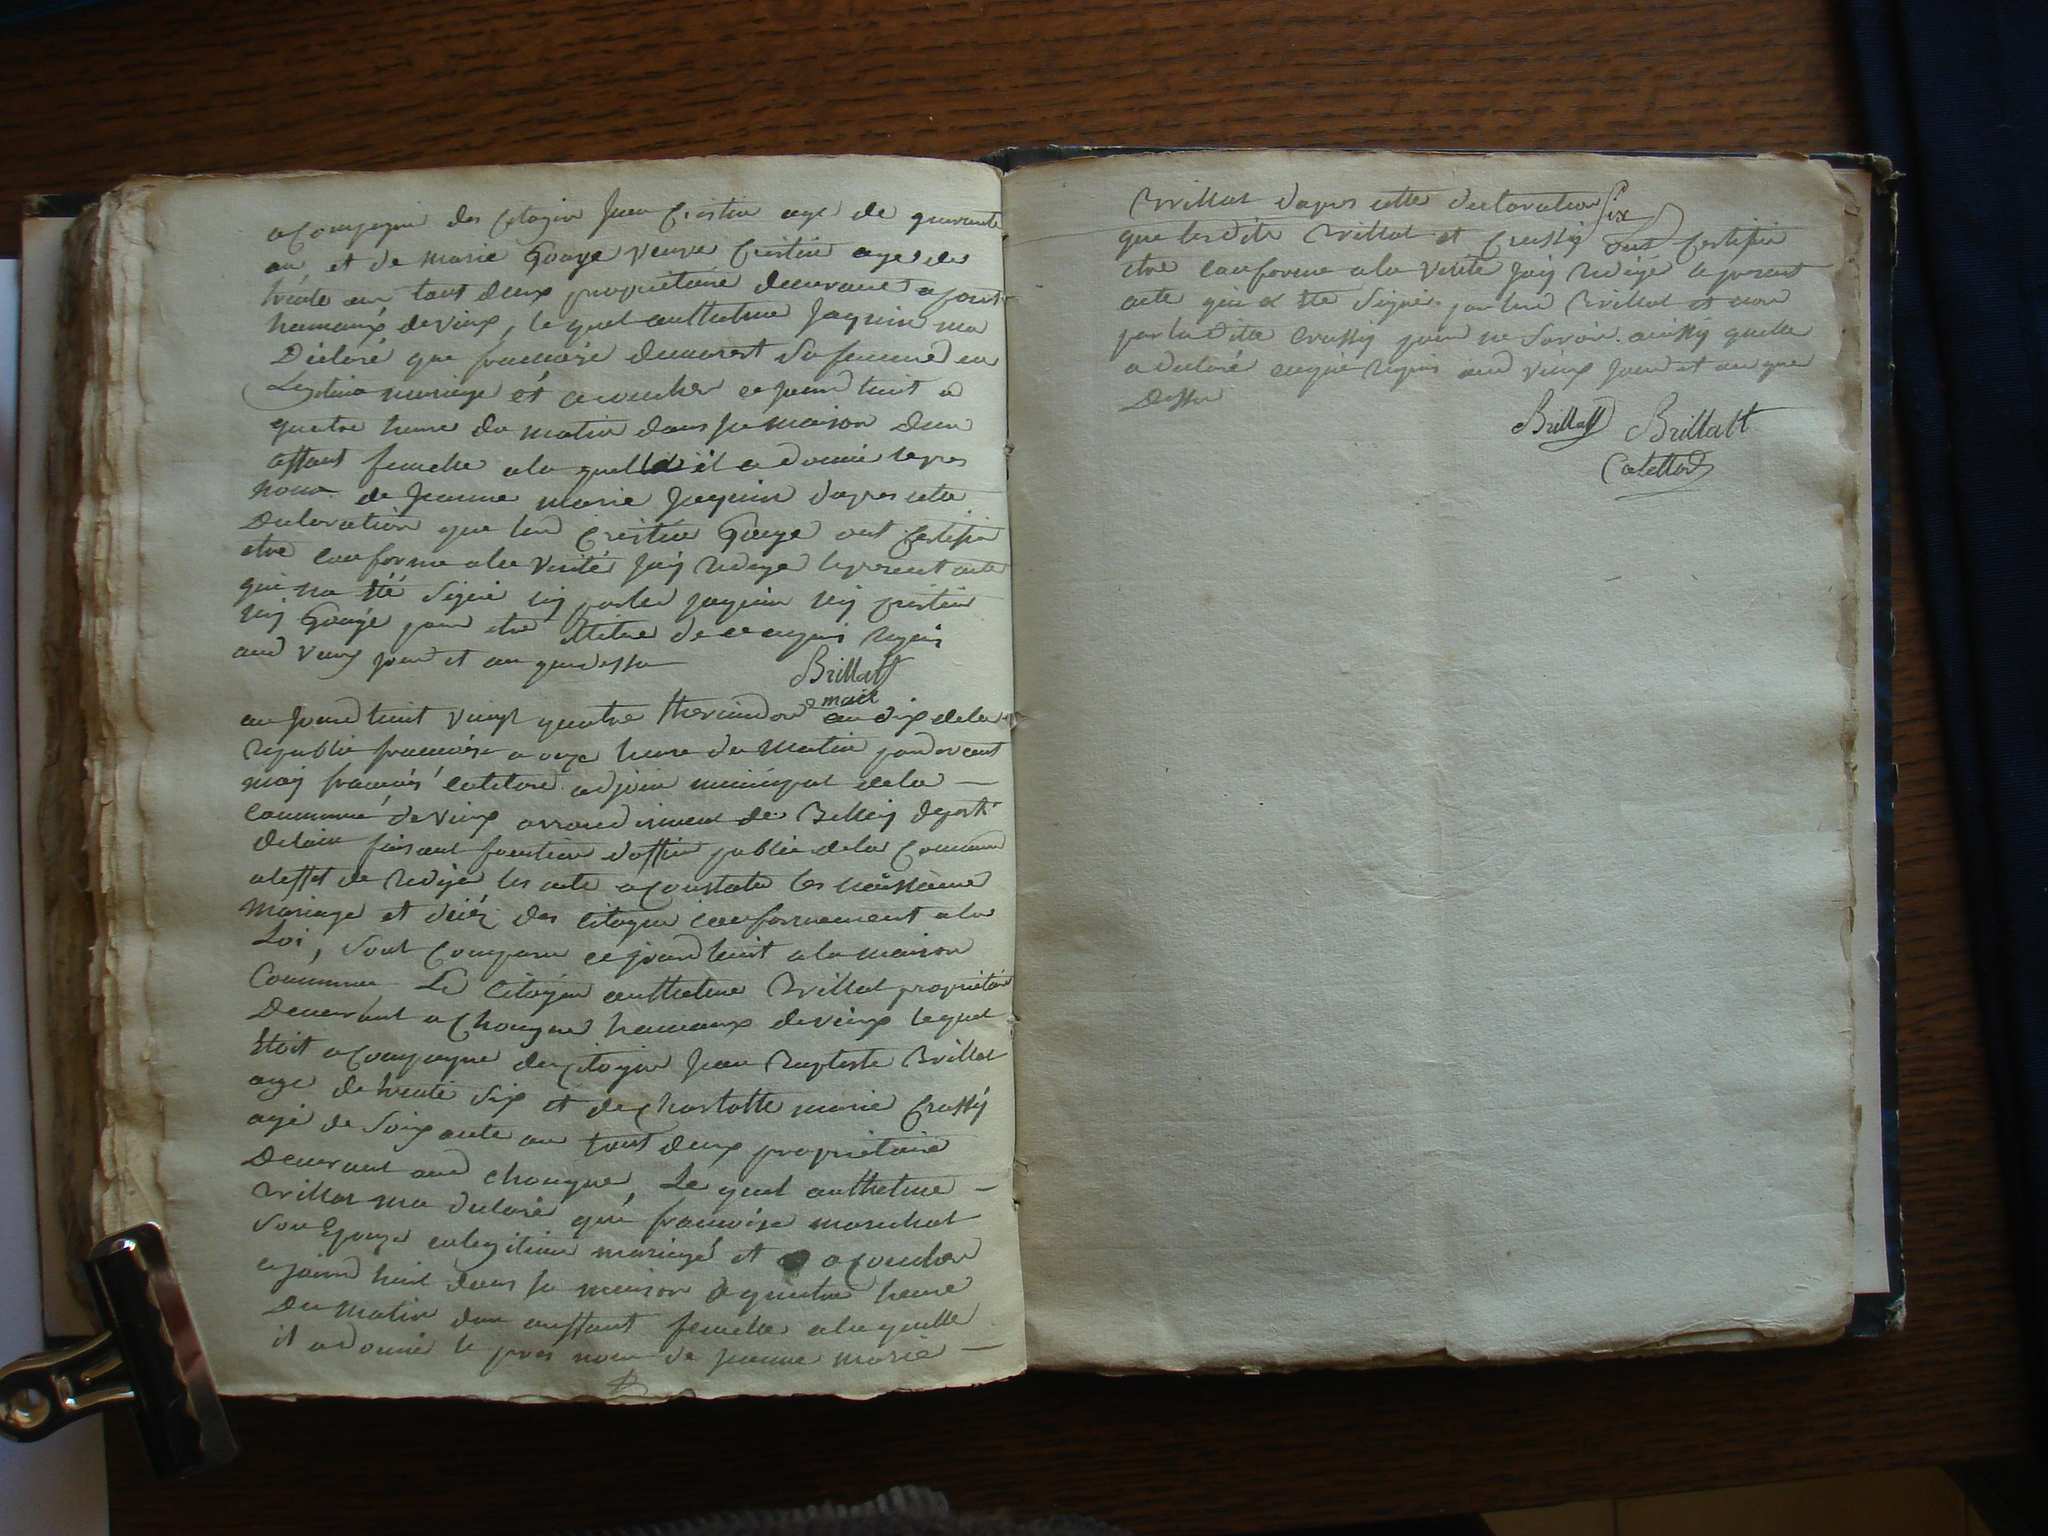 acompagné des Citoyin Jean Cristin agé de quarante
an et de marie Gouge veuve Cristin agé de
trente an tout deux propriétaire demurant a
hamaux de vieux, le quel anthelme Jaquin ma
Déclaré que francoise demorest sa femme en
Legitime mariage et acoucher ce jourd huit a
quatre heure du matin dans sa maison dun
affant femelle a la quelle il a donné le pres
nom de Jeanne marie Jaquin dapres cette
Declaration que led Cristin Gouge ont certifié
etre conforme a la verité jaij redigé le present acte
qui na été signé nij par led jaquin nij cristin
nij Gouge pour etre illitére de ce enquis requis
aud vieux jour et an que dessu
Brillat
maire
au jourd huit vingt quatre thermidore an dix de la
republic francoise a onze heure du matin pardevant
moij francois catelard adjoin municipal de la
commune de vieux arroudisment de Belleij depart
delain faisant fonction doffier public de la Commune
aleffet de redigé les acte a constaté les naissance
mariage et décéz des citoyen conformement a la
Loi, sont comparu ce jourd huit a la maison
Commune Le Citoyen anthelme Brillat propriétaire
Demurant a Chongne hamaux de vieux lequel
étoit acompagne du citoyin Jean Baptiste Brillat
age de trente six et de charlotte marie Crussij
agé de soixante an tout deux propriétaire
Demurant aud chongne, Le quel anthelme
Brillat ma declaré que francoise marechal
son Epouze en legitime mariage et acoucher
ce jourd huit dans sa maison a quatre heure
Du matin dun anffant femelle a la quelle
il a donné le pres nom de Jeanne marie
Brillat dapres cette declaration
que lesdite Brillat et Crussij ont certifié
etre conforme a la verité jaij redigé le present
acte qui a été signé par led Brillat et non
par la ditte Crussij pour ne savoir aussij quelle
a declaré enquie requis aud vieux jour et an que
Dessu
Brillat Brillatt
Catellard